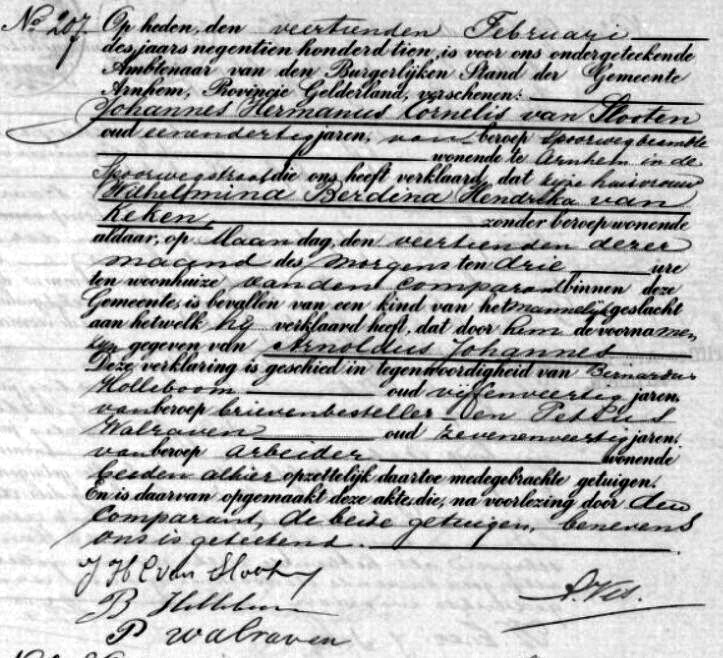 No 207. Op heden, den veertienden Februari
des jaars negentien honderd tien, is voor ons ondergeteekende
Ambtenaar van den Burgerlijken Stand der Gemeente
Arnhem, Provincie Gelderland, verschenen:
Johannes Hermanus Cornelis van Slooten
oud eenendertig jaren, van beroep spoorwegbeambte
wonende te Arnhem in de
Spoorwegstraat die ons heeft verklaard, dat zijne huisvrouw
Wilhelmina Berdina Hendrika van
Keken, zonder beroep wonende
aldaar, op Maandag, den veertienden dezer
maand des morgens ten drie ure
ten woonhuize van den comparant binnen deze
Gemeente, is bevallen van een kind van het mannelijk geslacht
aan hetwelk hij verklaard heeft, dat door hem de voorname,
zijn gegeven van Arnoldus Johannes
Deze verklaring is geschied in tegenwoordigheid van Bernardus
Holleboom oud vijfenveertig jaren,
van beroep brievenbesteller en Petrus
Walraven oud zevenenveertig jaren,
van beroep arbeider wonende
beiden alhier opzettelijk daartoe medegebrachte getuigen.
En is daarvan opgemaakt deze akte, die, na voorlezing door den
comparant, de beide getuigen, benevens
ons is geteekend.
J H C van Slooten
B Holleboom
A. Ves.
P Walraven